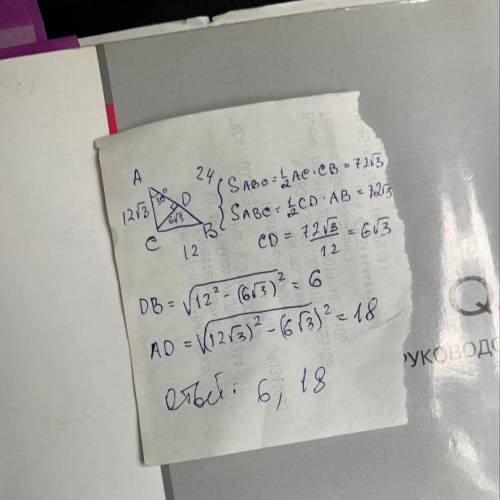 A
30°
D
24
12√3
6√3
C
B
12
S ABC = 1/2 AC · CB = 72√3
S ABC = 1/2 CD · AB = 72√3
CD = 72√3/12 = 6√3
DB = √(12² - (6√3)²) = 6
AD = √((12√3)² - (6√3)²) = 18
Ответ: 6, 18
Q
РУКОВОДС